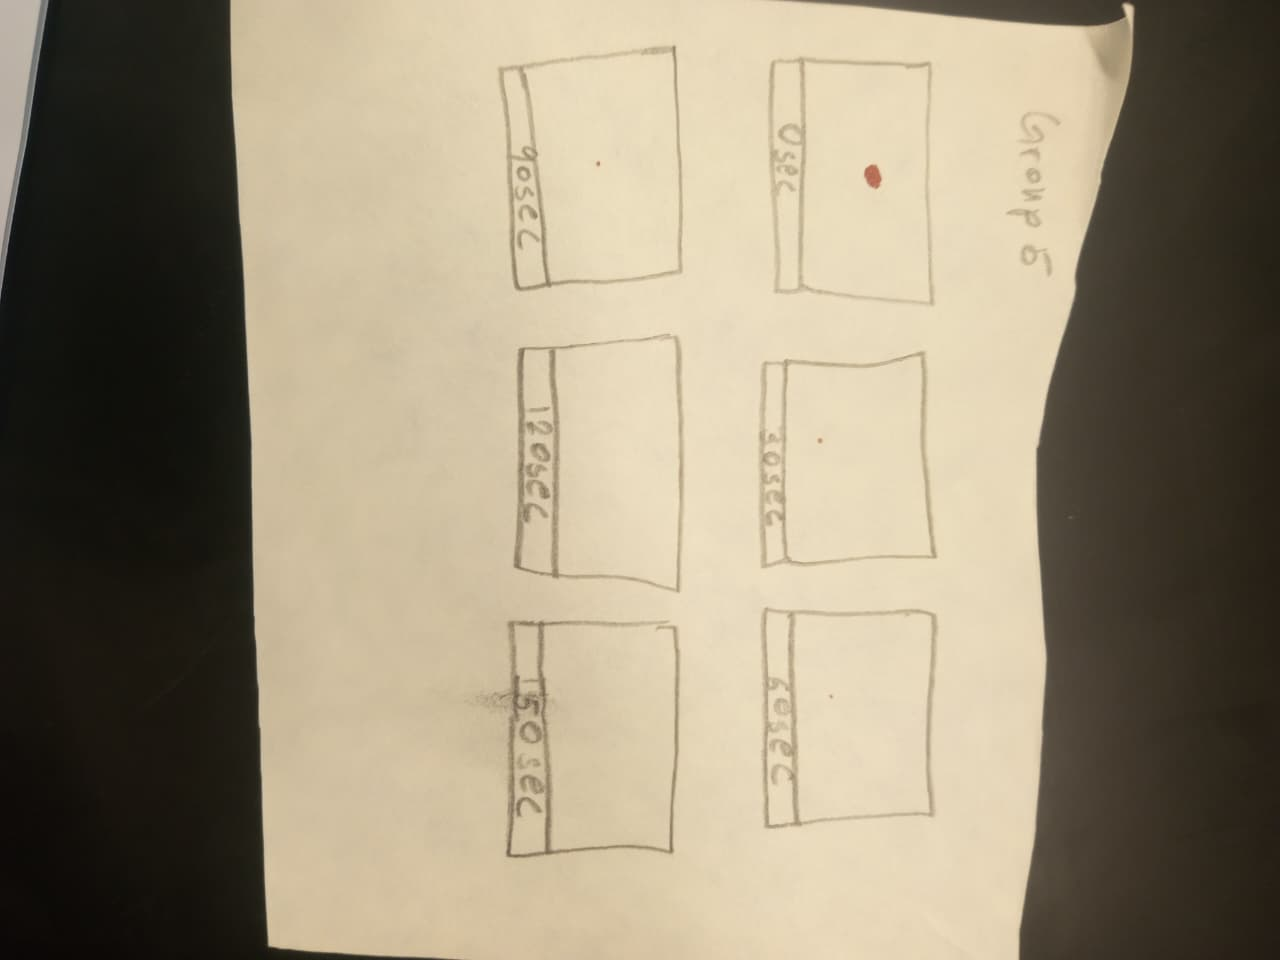 Group 5
0sec
30sec
60sec
90sec
120sec
150sec